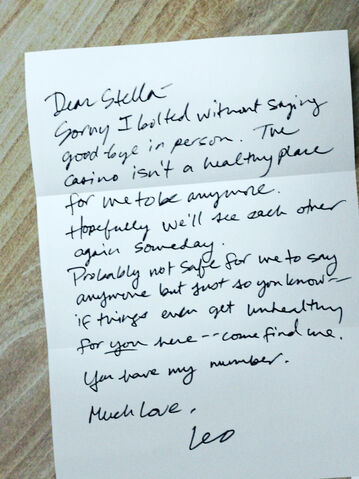 Dear Stella-
Sorry I bolted without saying
good-bye in person. The
casino isn't a healthy place
for me to be anymore.
Hopefully we'll see each other
again someday.
Probably not safe for me to say
anymore but just so you know--
if things ever get unhealthy
for you here -- come find me.
You have my number.
Much Love,
Leo